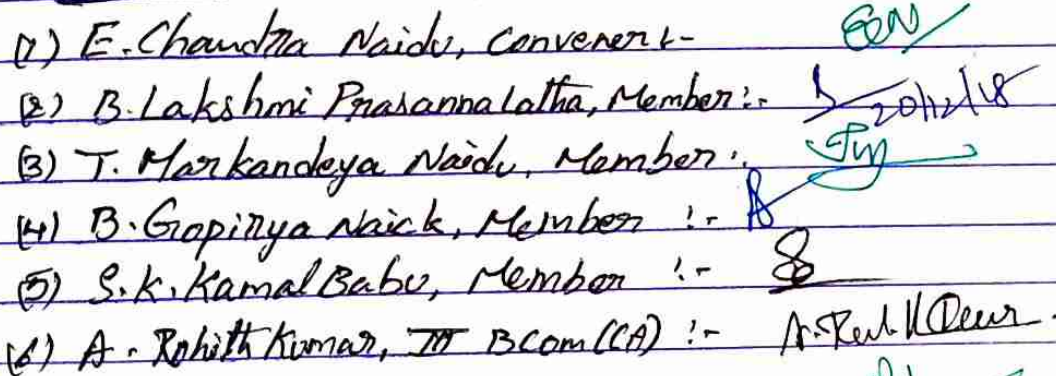 (1) E. Chandra Naidu, Convener :-
(2) B. Lakshmi Prasannalatha, Member :- 20/12/18
(3) T. Markandeya Naidu, Member :-
(4) B. Gopinya Naick, Member :-
(5) S.K. Kamal Babu, Member :-
(6) A. Rohith Kumar, III BCom (CA) :-